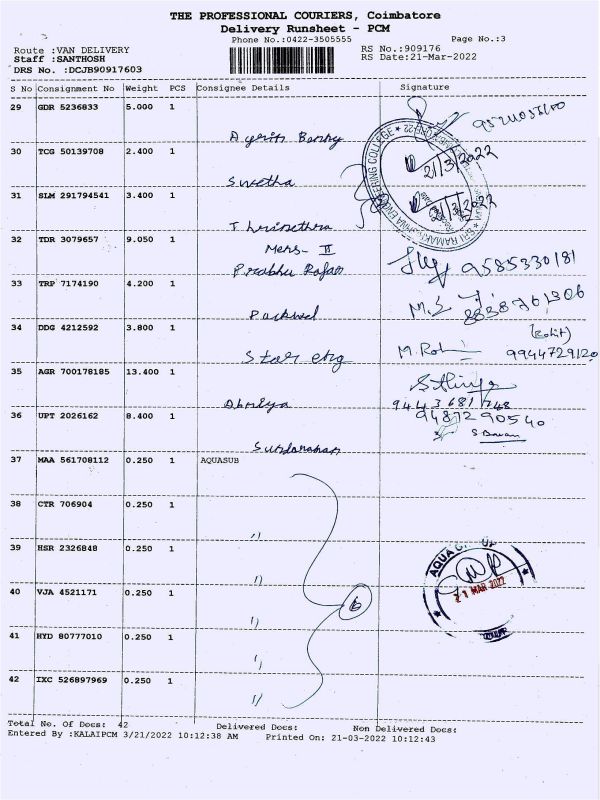 THE PROFESSIONAL COURIERS, Coimbatore
Delivery Runsheet - PCM
Phone No.:0422-3505555 Page No.:3
Route :VAN DELIVERY RS No.:909176
Staff :SANTHOSH RS Date:21-Mar-2022
DRS No. :DCJB90917603
S No Consignment No Weight PCS Consignee Details Signature
29 GDR 5236833 5.000 1
30 TCG 50139708 2.400 1
21/3/2022
Swetha
31 SLM 291794541 3.400 1
21/3/2022
32 TDR 3079657 9.050 1
Mens- II
Prabhu Rajan 9585330181
33 TRP 7174190 4.200 1
M.S
34 DDG 4212592 3.800 1
(Rohit)
Star eng M. Rohi 9944729120
35 AGR 700178185 13.400 1
9443681748
36 UPT 2026162 8.400 1
9487290540
37 MAA 561708112 0.250 1 AQUASUB
38 CTR 706904 0.250 1
"
39 HSR 2326848 0.250 1
"
AQUA GROUP
21 MAR 2022
40 VJA 4521171 0.250 1
6
"
41 HYD 80777010 0.250 1
"
42 IXC 526897969 0.250 1
"
Total No. Of Docs: 42 Delivered Docs: Non Delivered Docs:
Entered By :KALAIPCM 3/21/2022 10:12:38 AM Printed On: 21-03-2022 10:12:43
SRI RAMAKRISHNA ENGINEERING COLLEGE